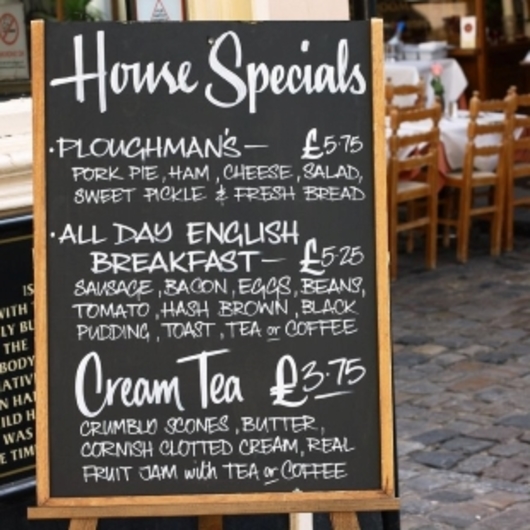 House Specials
· PLOUGHMAN'S — £5.75
PORK PIE, HAM, CHEESE, SALAD,
SWEET PICKLE & FRESH BREAD
· ALL DAY ENGLISH
BREAKFAST — £5.25
SAUSAGE, BACON, EGGS, BEANS,
TOMATO, HASH BROWN, BLACK
PUDDING, TOAST, TEA or COFFEE
Cream Tea £3.75
CRUMBLD SCONES, BUTTER,
CORNISH CLOTTED CREAM, REAL
FRUIT JAM with TEA or COFFEE
IS
WITH
LY BU
THE
BODY
N HA
ILD H
WAS
E TIM